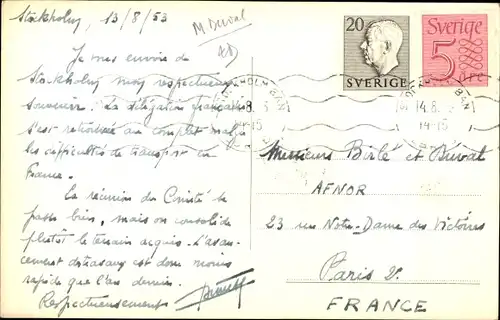 Stockholm, 13/8/53
M Duval
Je vous envoie de
Stockholm mon respectueux
souvenir. La délégation française
s'est retrouvée au complet malgré
les difficultés de transport en
France.
La réunion du Comité se
passe bien, mais on consolide
plutôt le terrain acquis. L'avan-
cement des travaux est donc moins
rapide que l'an dernier.
Respectueusement
20
SVERIGE
Sverige
5 öre
14.8.
14-15
Messieurs Birlé et Duval
AFNOR
23 rue Notre-Dame des Victoires
Paris 2.
FRANCE